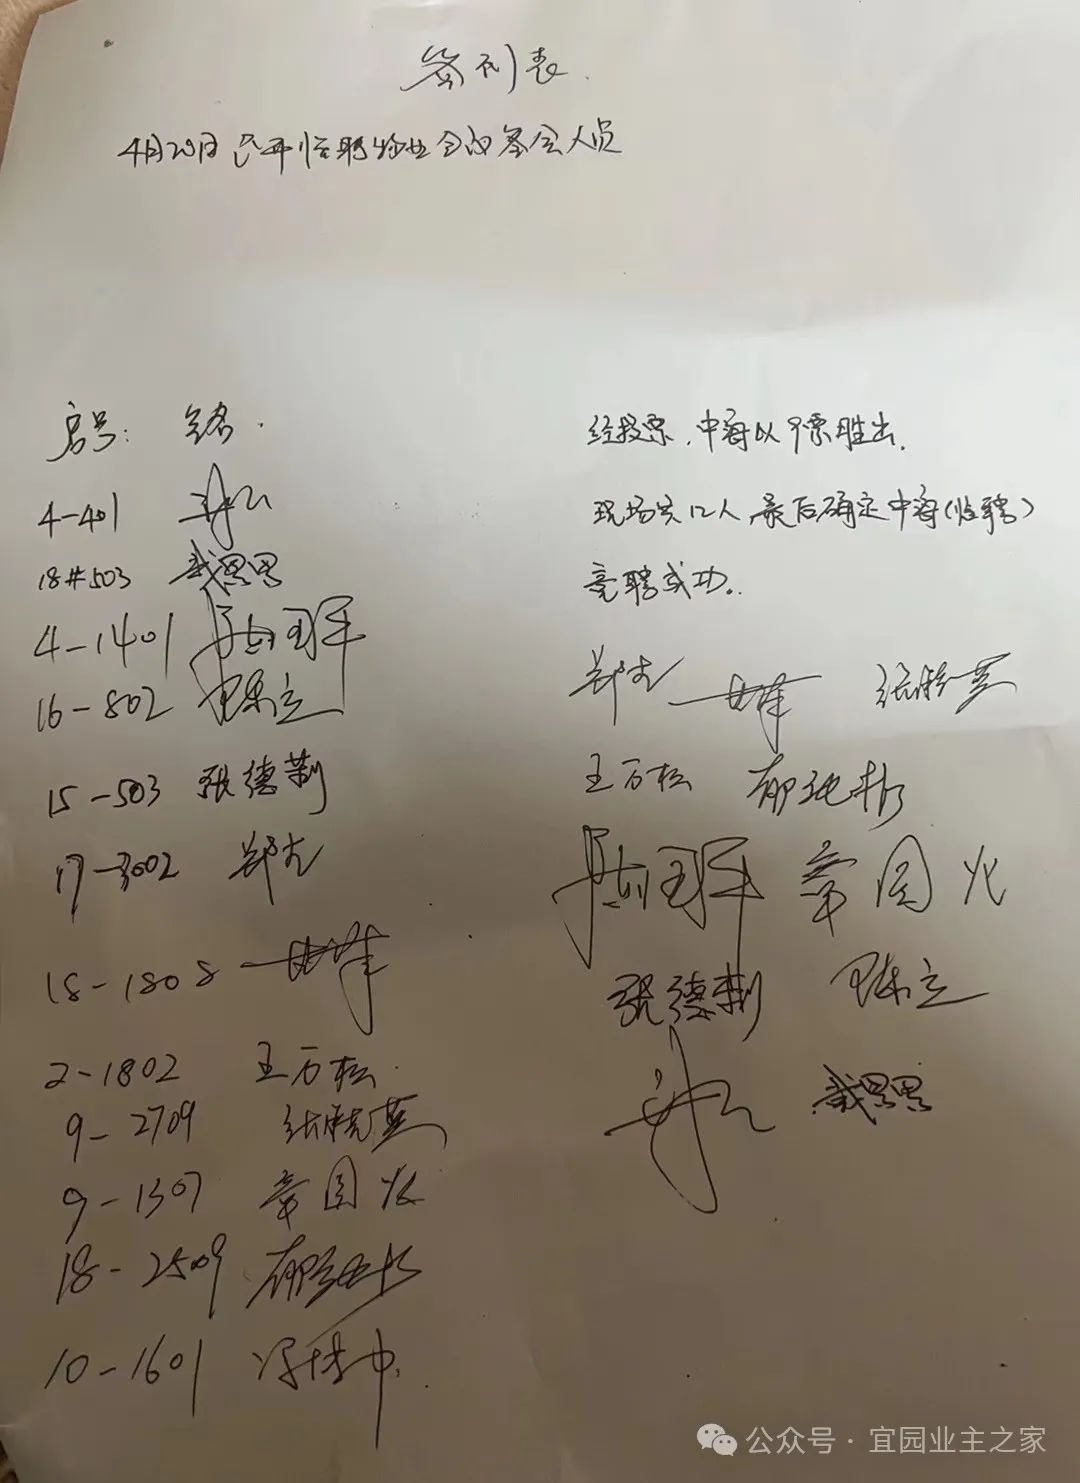 签到表.
4月20日召开临聘物业会议参会人员
房号: 签名.
4-401
18#503 戴思思
4-1401
16-802
15-503 张德荆
17-3002 郑杰
18-1808
2-1802 王万松.
9-2709
9-1307 章国火
18-2509
10-1601
经投票,中海以9票胜出.
现场共12人,最后确定中海(临聘)
竞聘成功.
郑杰
王万松
章国火
张德荆
戴思思
公众号·宜园业主之家